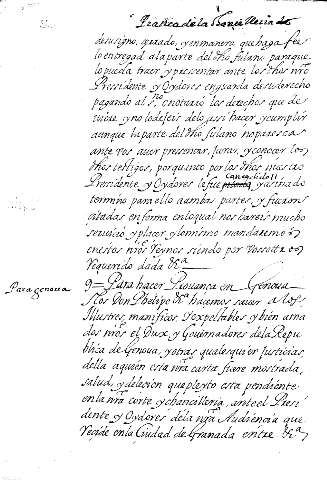 Pratica de la Chancilleria de
de su signo, çerrado, y en manera que haga fee
lo entregad a la parte del dho fulano para que
lo pueda traer y presentar ante los dhos nros
Presidente y Oydores en guarda de su derecho
pagando al sno, o notario los derechos que de
viere, y no lo dejeis de lo assi hacer, y cumplir
aunque la parte del dho fulano no parezca
ante vos a ver presentar, Jurar, y conocer los
dhos testigos, por quanto por los dhos nuestros
Presidente, y Oydores le fue y asinado
termino para ello a ambas partes, y fueron
citadas en forma en lo qual nos hareis mucho
servicio y placer y lo mismo mandaremos
en estos nros Reynos siendo por vos
requerido dada &ca
Para genova
9 Para hacer Provança en Genova
Nos Don Phelipe &ca hacemos saver a los
Illustres, manificos, y expetables y bien ama
dos nros el Dux, y Governadores de la Repu
blica de Genova, y otras qualesquier Justicias,
della a quien esta nra carta fuere mostrada,
salud, y dileción que pleyto esta pendiente
en la nra corte y chancilleria, ante el Presi
dente y Oydores de la nra Audiencia que
reside en la Ciudad de Granada entre &ca